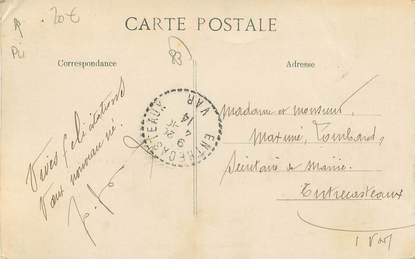 20€
CARTE POSTALE
Correspondance
Adresse
83
ENTRECASTEAUX
VAR
Vives félicitations
aux nouveau né.
Madame et monsieur
Maximé, Lombard,
Secrétaire de Mairie
Entrecasteaux
Var